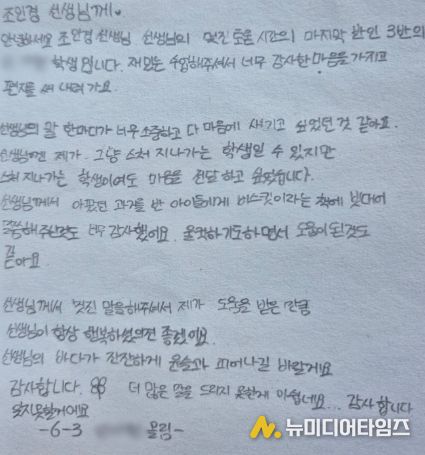 조인경 선생님께♥
안녕하세요 조인경 선생님 선생님의 멋진 도움 시간의 마지막 반인 3반의
학생입니다. 재밌는 수업해주셔서 너무 감사한 마음을 가지고
편지를 써 내려가요.
선생님의 말 한마디가 너무 소중하고 다 마음에 새기고 싶었던 것 같아요.
선생님껜 제가 그냥 스쳐 지나가는 학생일 수 있지만
스쳐 지나가는 학생이여도 마음을 전달하고 싶었습니다.
선생님께서 아팠던 과거를 반 아이들에게 비스킷이라는 책에 빗대어
말씀해주신것도 너무 감사했어요. 울컥하기도하면서 도움이된것도
같
아요
선생님께서 멋진 말을해주셔서 제가 도움을 받은 만큼
선생님이 항상 행복하셨으면 좋겠어요.
선생님의 바다가 잔잔하게 윤슬과 피어나길 바랄게요
감사합니다. 더 많은 말을 드리지 못한게 아쉽네요... 감사합니다
잊지못할거에요
-6-3 올림-
뉴미디어타임즈